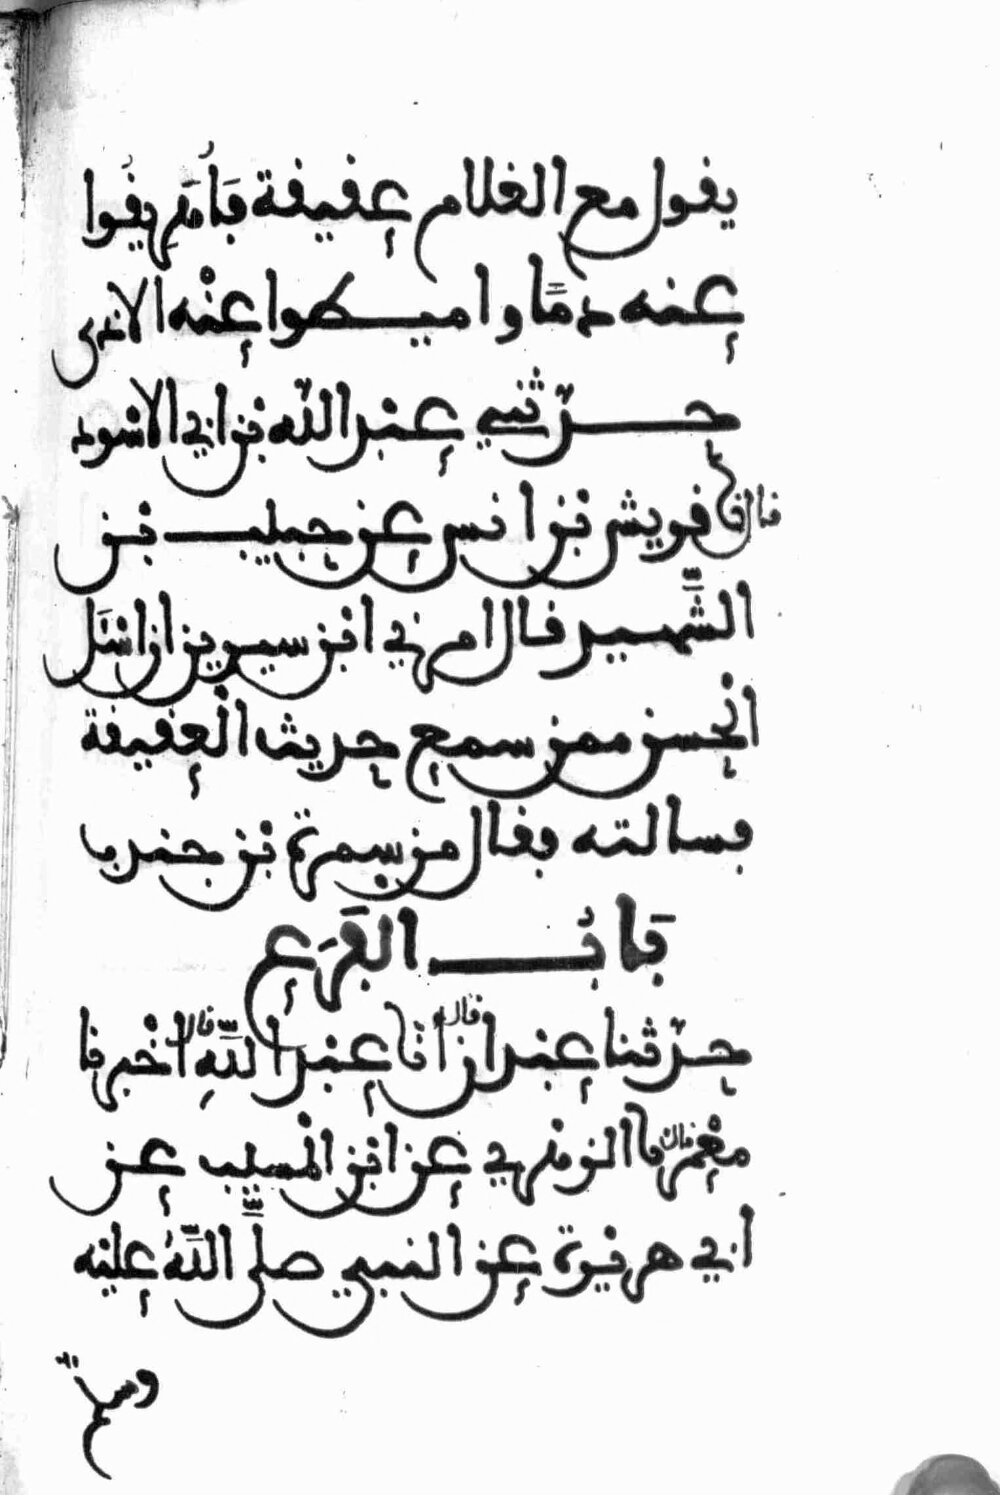 يقول مع الغلام عقيقة فَأَهَرِيقُوا
عنه دمًا واميطوا عنْه الاذى
حدّثني عبْد اللّه بن ابي الاسْود
قال نا قريش بْن انس عن حبيب بْن
الشَّهيد قال امرني ابْن سيرين ان اسْـَٔل
الْحسن ممن سمع حديث الْعقيقة
فسالته فقال من سمرة بْن جندب
بَابُ الفَرَع
حدّثنا عبْدان قال انا عبْد اللَّهِ قال اخْبرنا
معْمر قال نا الزهري عن ابْن الْمسيب عن
ابي هريْرة عن النبي صلَّى اللَّهُ عليْه
وسلم